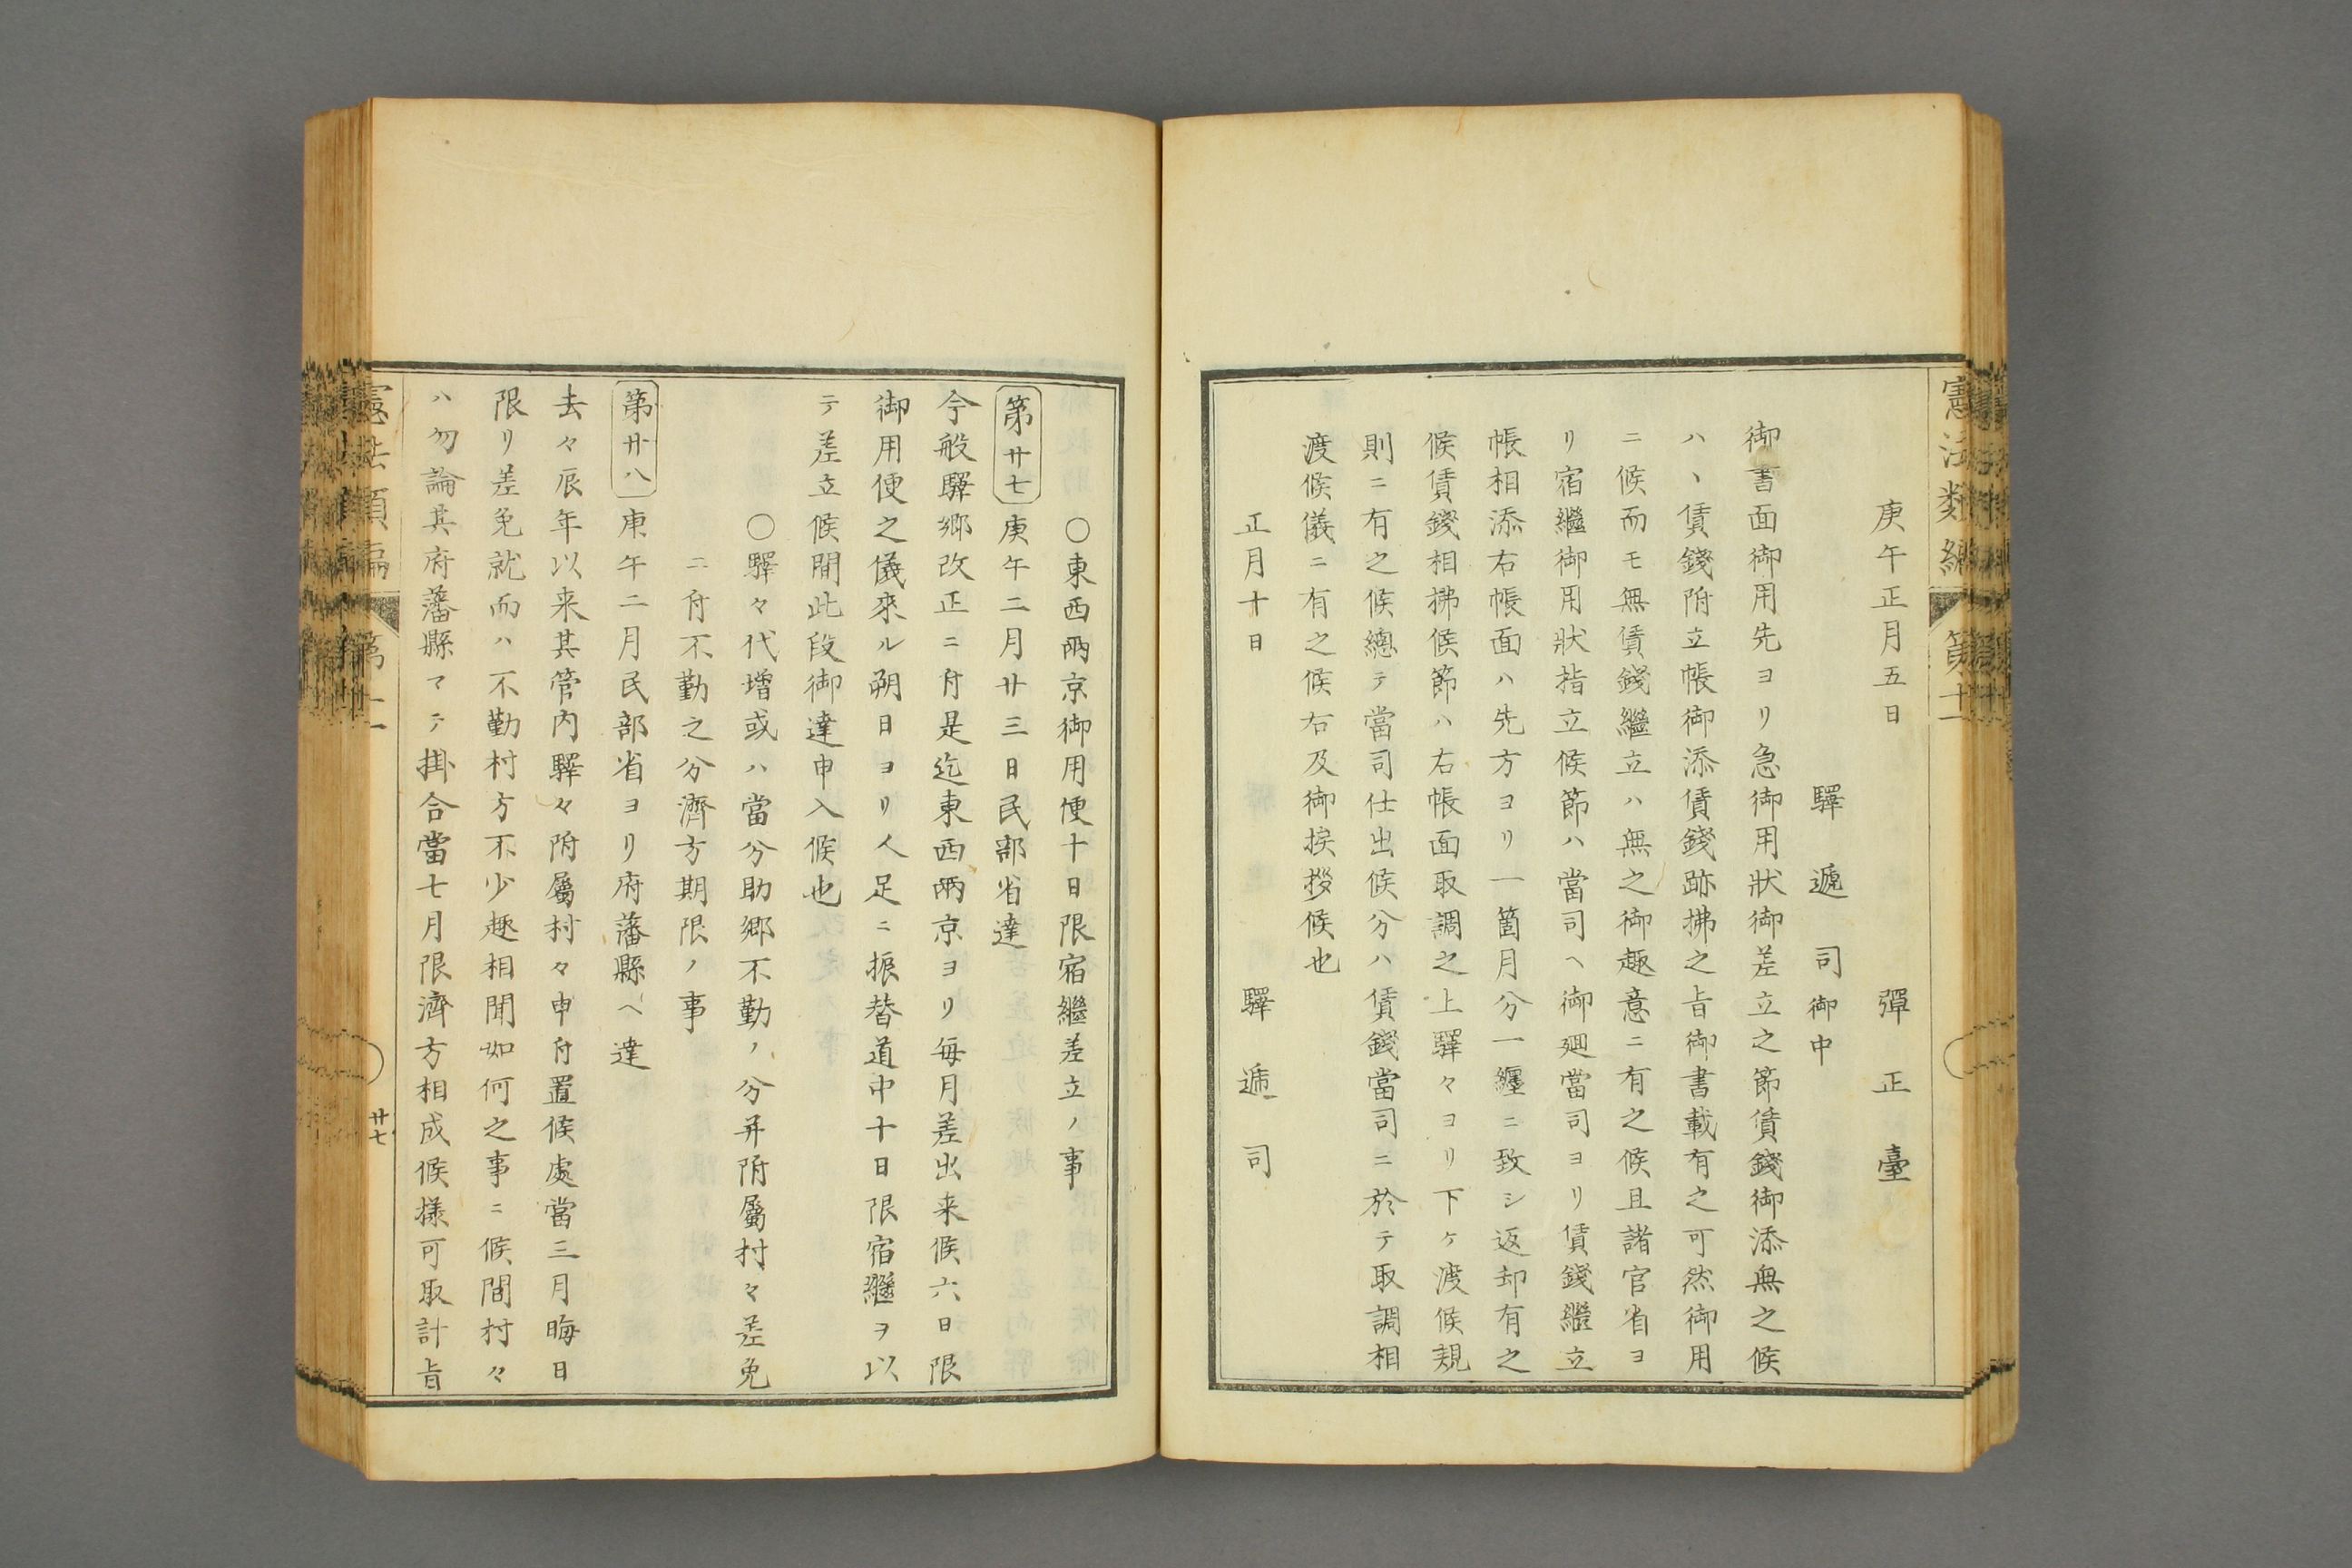 憲法類編
第十一
庚午正月五日　彈正臺
驛遞司御中
御書面御用先ヨリ急御用狀御差立之節賃錢御添無之候
ハヽ賃錢附立帳御添賃錢跡拂之旨御書載有之可然御用
ニ候而モ無賃錢繼立ハ無之御趣意ニ有之候且諸官省ヨ
リ宿繼御用狀指立候節ハ當司ヘ御廻當司ヨリ賃錢繼立
帳相添右帳面ハ先方ヨリ一箇月分一纒ニ致シ返却有之
候賃錢相拂候節ハ右帳面取調之上驛々ヨリ下ケ渡候規
則ニ有之候總テ當司仕出候分ハ賃錢當司ニ於テ取調相
渡候儀ニ有之候右及御挨拶候也
正月十日　驛遞司
〇東西兩京御用便十日限宿繼差立ノ事
第廿七 庚午二月廿三日民部省達
今般驛郷改正ニ付是迄東西兩京ヨリ每月差出来候六日限
御用便之儀來ル朔日ヨリ人足ニ振替道中十日限宿繼ヲ以
テ差立候間此段御達申入候也
〇驛々代增或ハ當分助郷不勤ノ分并附屬村々差免
ニ付不勤之分濟方期限ノ事
第廿八 庚午二月民部省ヨリ府藩縣ヘ達
去々辰年以来其管内驛々附屬村々申付置候處當三月晦日
限リ差免就而ハ不勤村方不少趣相聞如何之事ニ候間村々
ハ勿論其府藩縣マテ掛合當七月限濟方相成候樣可取計旨
憲法類編
第十一
廿七